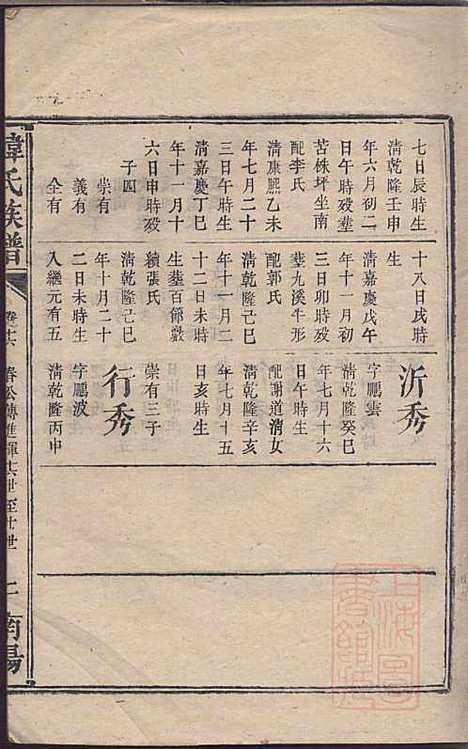 七日辰時生
清乾隆壬申
年六月初二
日午時殁塟
苦株坪坐南
配李氏
清康熙乙未
年七月二十
三日午時生
清嘉慶丁巳
年十一月十
六日申時殁
子四
崇有
義有
全有
十八日戌時
生
清嘉慶戊午
年十一月初
三日卯時殁
塟九溪牛形
配郭氏
清乾隆己巳
年十一月二
十二日未時
生塟百節嚴
續張氏
清乾隆己巳
年十月二十
二日未時生
入繼元有五
沂秀
字鵬雲
清乾隆癸巳
年七月十六
日午時生
配謝道清女
清乾隆辛亥
年七月十五
日亥時生
崇有三子
行秀
字鵬波
清乾隆丙申
韓氏族譜
南陽
上海圖書館藏